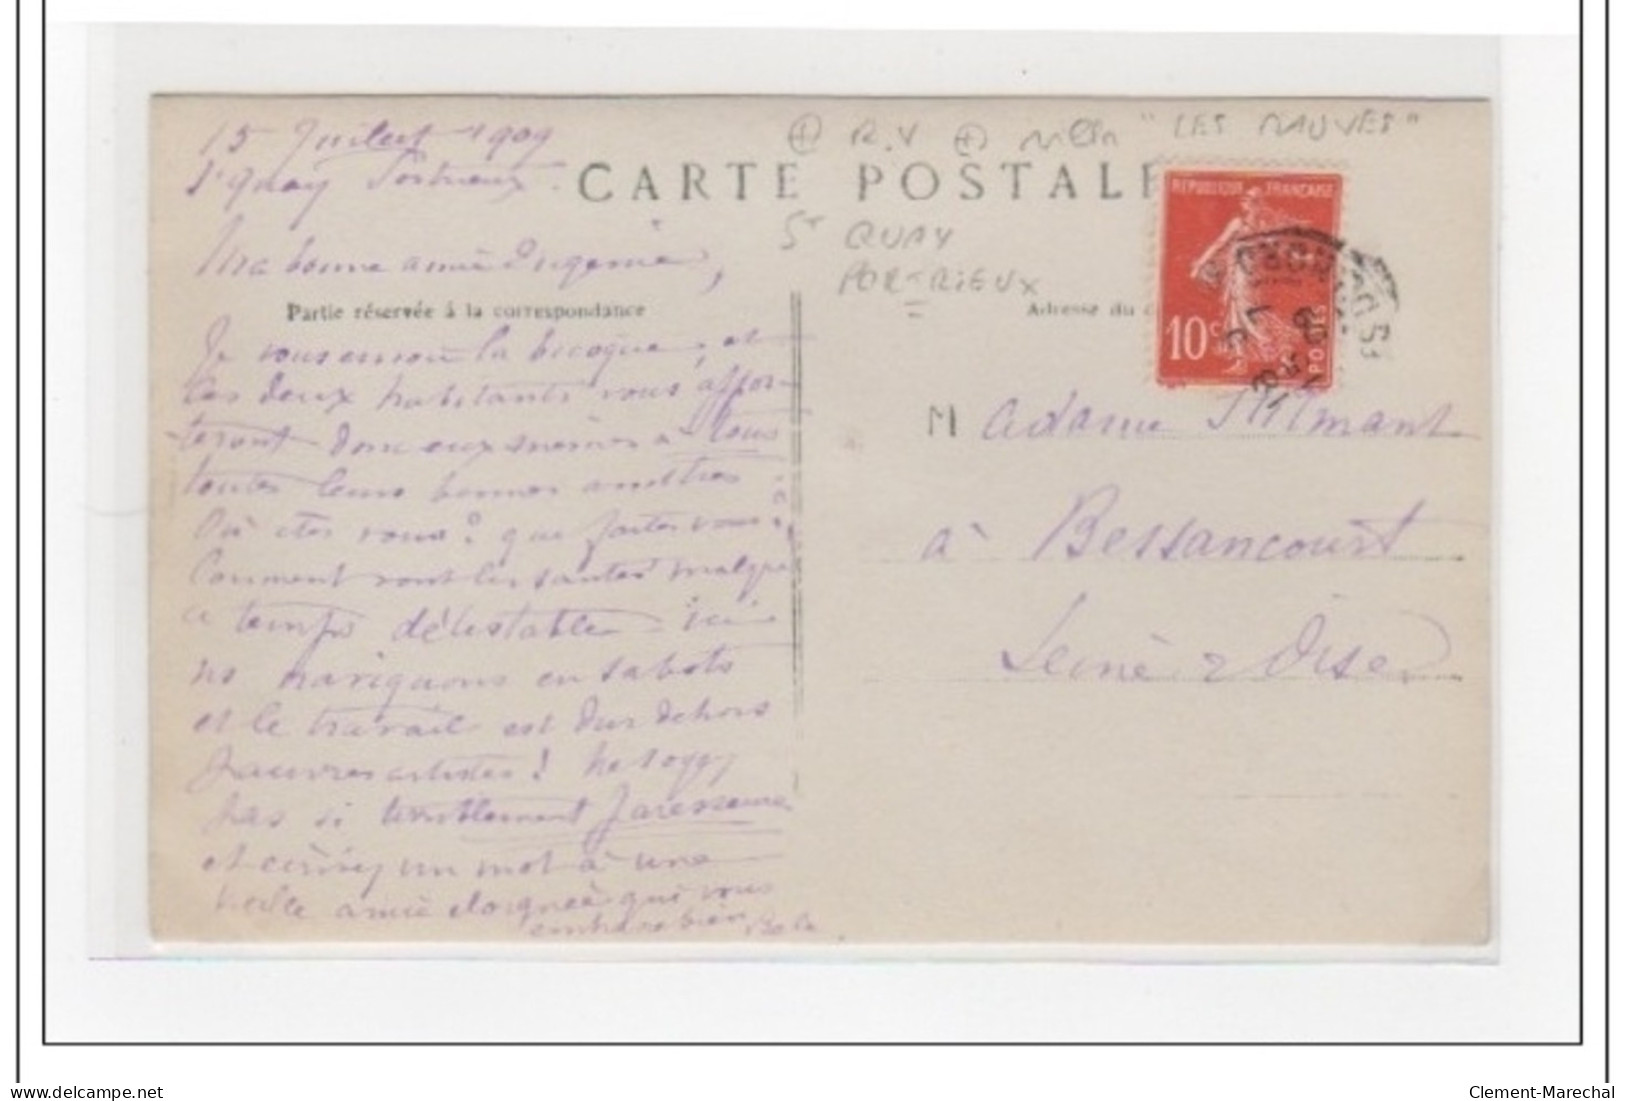 15 Juillet 1909
St Quay Portrieux
Ma bonne amie Eugenie,
CARTE POSTALE
R.V "LES MAUVES"
St QUAY
PORTRIEUX
REPUBLIQUE FRANÇAISE
10c
POSTES
Partie réservée à la correspondance
Adresse du
Je vous envoie la bicoque, et
les deux habitants vous appor-
teront donc eux mêmes à tous
toutes leurs bonnes amitiés.
Où êtes vous? que faites vous?
Comment vont les santés malgré
ce temps détestable - ici
ns naviguons en sabots
et le travail est dur dehors
pauvres artistes! ne soyez
pas si terriblement paresseuse
et écrivez un mot à une
vieille amie éloignée qui vous
embrasse bien
Madame
à Bessancourt
Seine & Oise
delcampe.net
Clement-Marechal